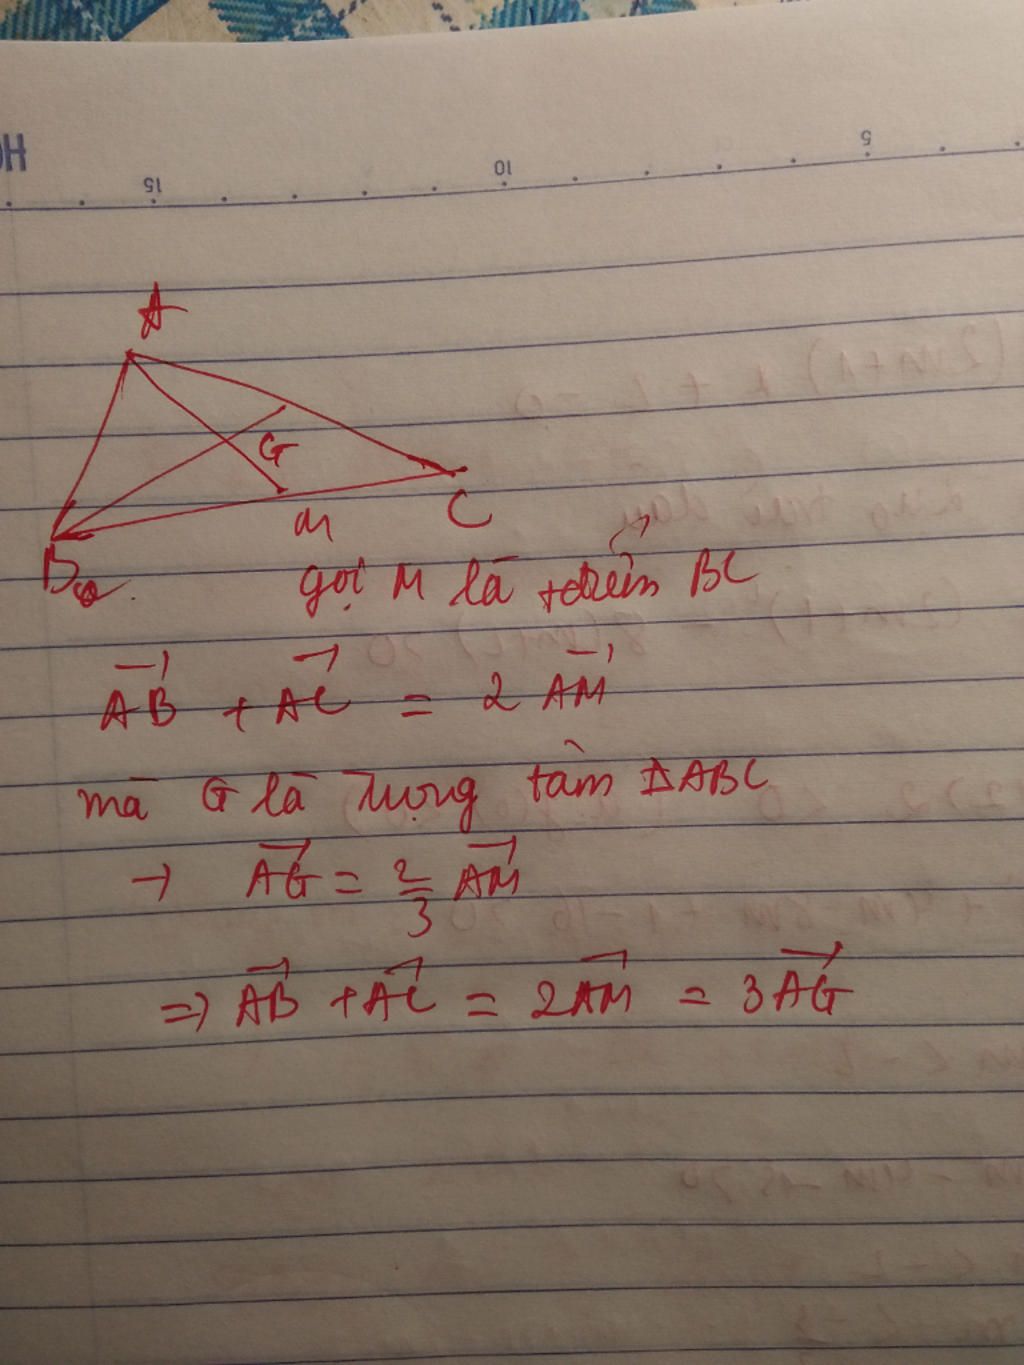 HO
15 10 5
A
G
B
M
C
gọi M là trđiểm BC
\overrightarrow{AB} + \overrightarrow{AC} = 2 \overrightarrow{AM}
mà G là trọng tâm ΔABC
→ \overrightarrow{AG} = \frac{2}{3} \overrightarrow{AM}
⇒ \overrightarrow{AB} + \overrightarrow{AC} = 2\overrightarrow{AM} = 3\overrightarrow{AG}